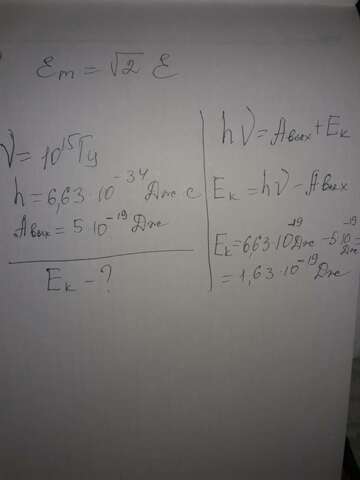 Ɛm = √2 Ɛ
ν = 10¹⁵ Гц
h = 6,63·10⁻³⁴ Дж с
Aвых = 5·10⁻¹⁹ Дж
Eк - ?
hν = Aвых + Eк
Eк = hν - Aвых
Eк = 6,63·10⁻¹⁹ Дж - 5·10⁻¹⁹ Дж =
= 1,63·10⁻¹⁹ Дж